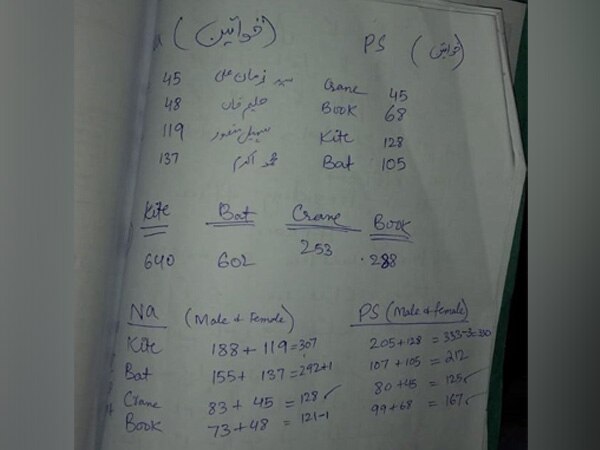 a (خواتین) PS (خواتین)
45 سید زمان علی Crane 45
48 حلیم خان Book 68
119 سہیل منصور Kite 128
137 محمد اکرم Bat 105
Kite Bat Crane Book
640 602 253 288
Na (Male & female) PS (Male & female)
Kite 188 + 119 = 307 205 + 128 = 333-3=330
Bat 155 + 137 = 292+1 107 + 105 = 212
Crane 83 + 45 = 128 ✓ 80 + 45 = 125 ✓
Book 73 + 48 = 121-1 99 + 68 = 167 ✓